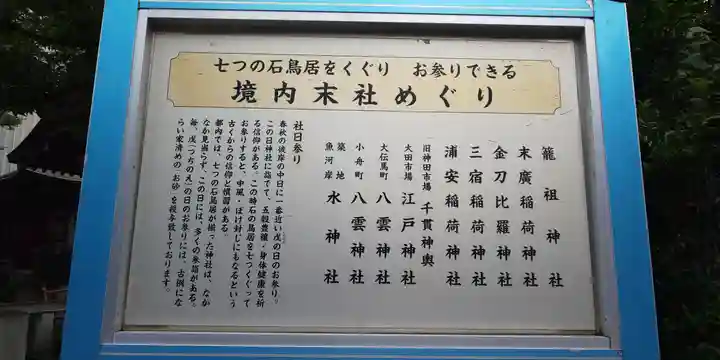 七つの石鳥居をくぐり　お参りできる
境内末社めぐり
籠祖神社
末廣稲荷神社
金刀比羅神社
三宿稲荷神社
浦安稲荷神社
旧神田市場　千貫神輿
大田市場　江戸神社
大伝馬町　八雲神社
小舟町　八雲神社
築地
魚河岸　水神社
社日参り
春秋の彼岸の中日に一番近い戊の日のお参り。
この日神社に詣でて、五穀豊穣・身体健康を祈
る信仰がある。この時石の鳥居を七つくぐって
お参りすると、中風・ぼけ封じにもなるという
古くからの信仰と慣習がある。
都内では、七つの石鳥居が揃った神社は、なか
なか見当らず、この日には、多くの参詣がある。
毎、戊（つちのえ）の日のお参りには、古例にな
らい家清めの お砂 を授与致しております。